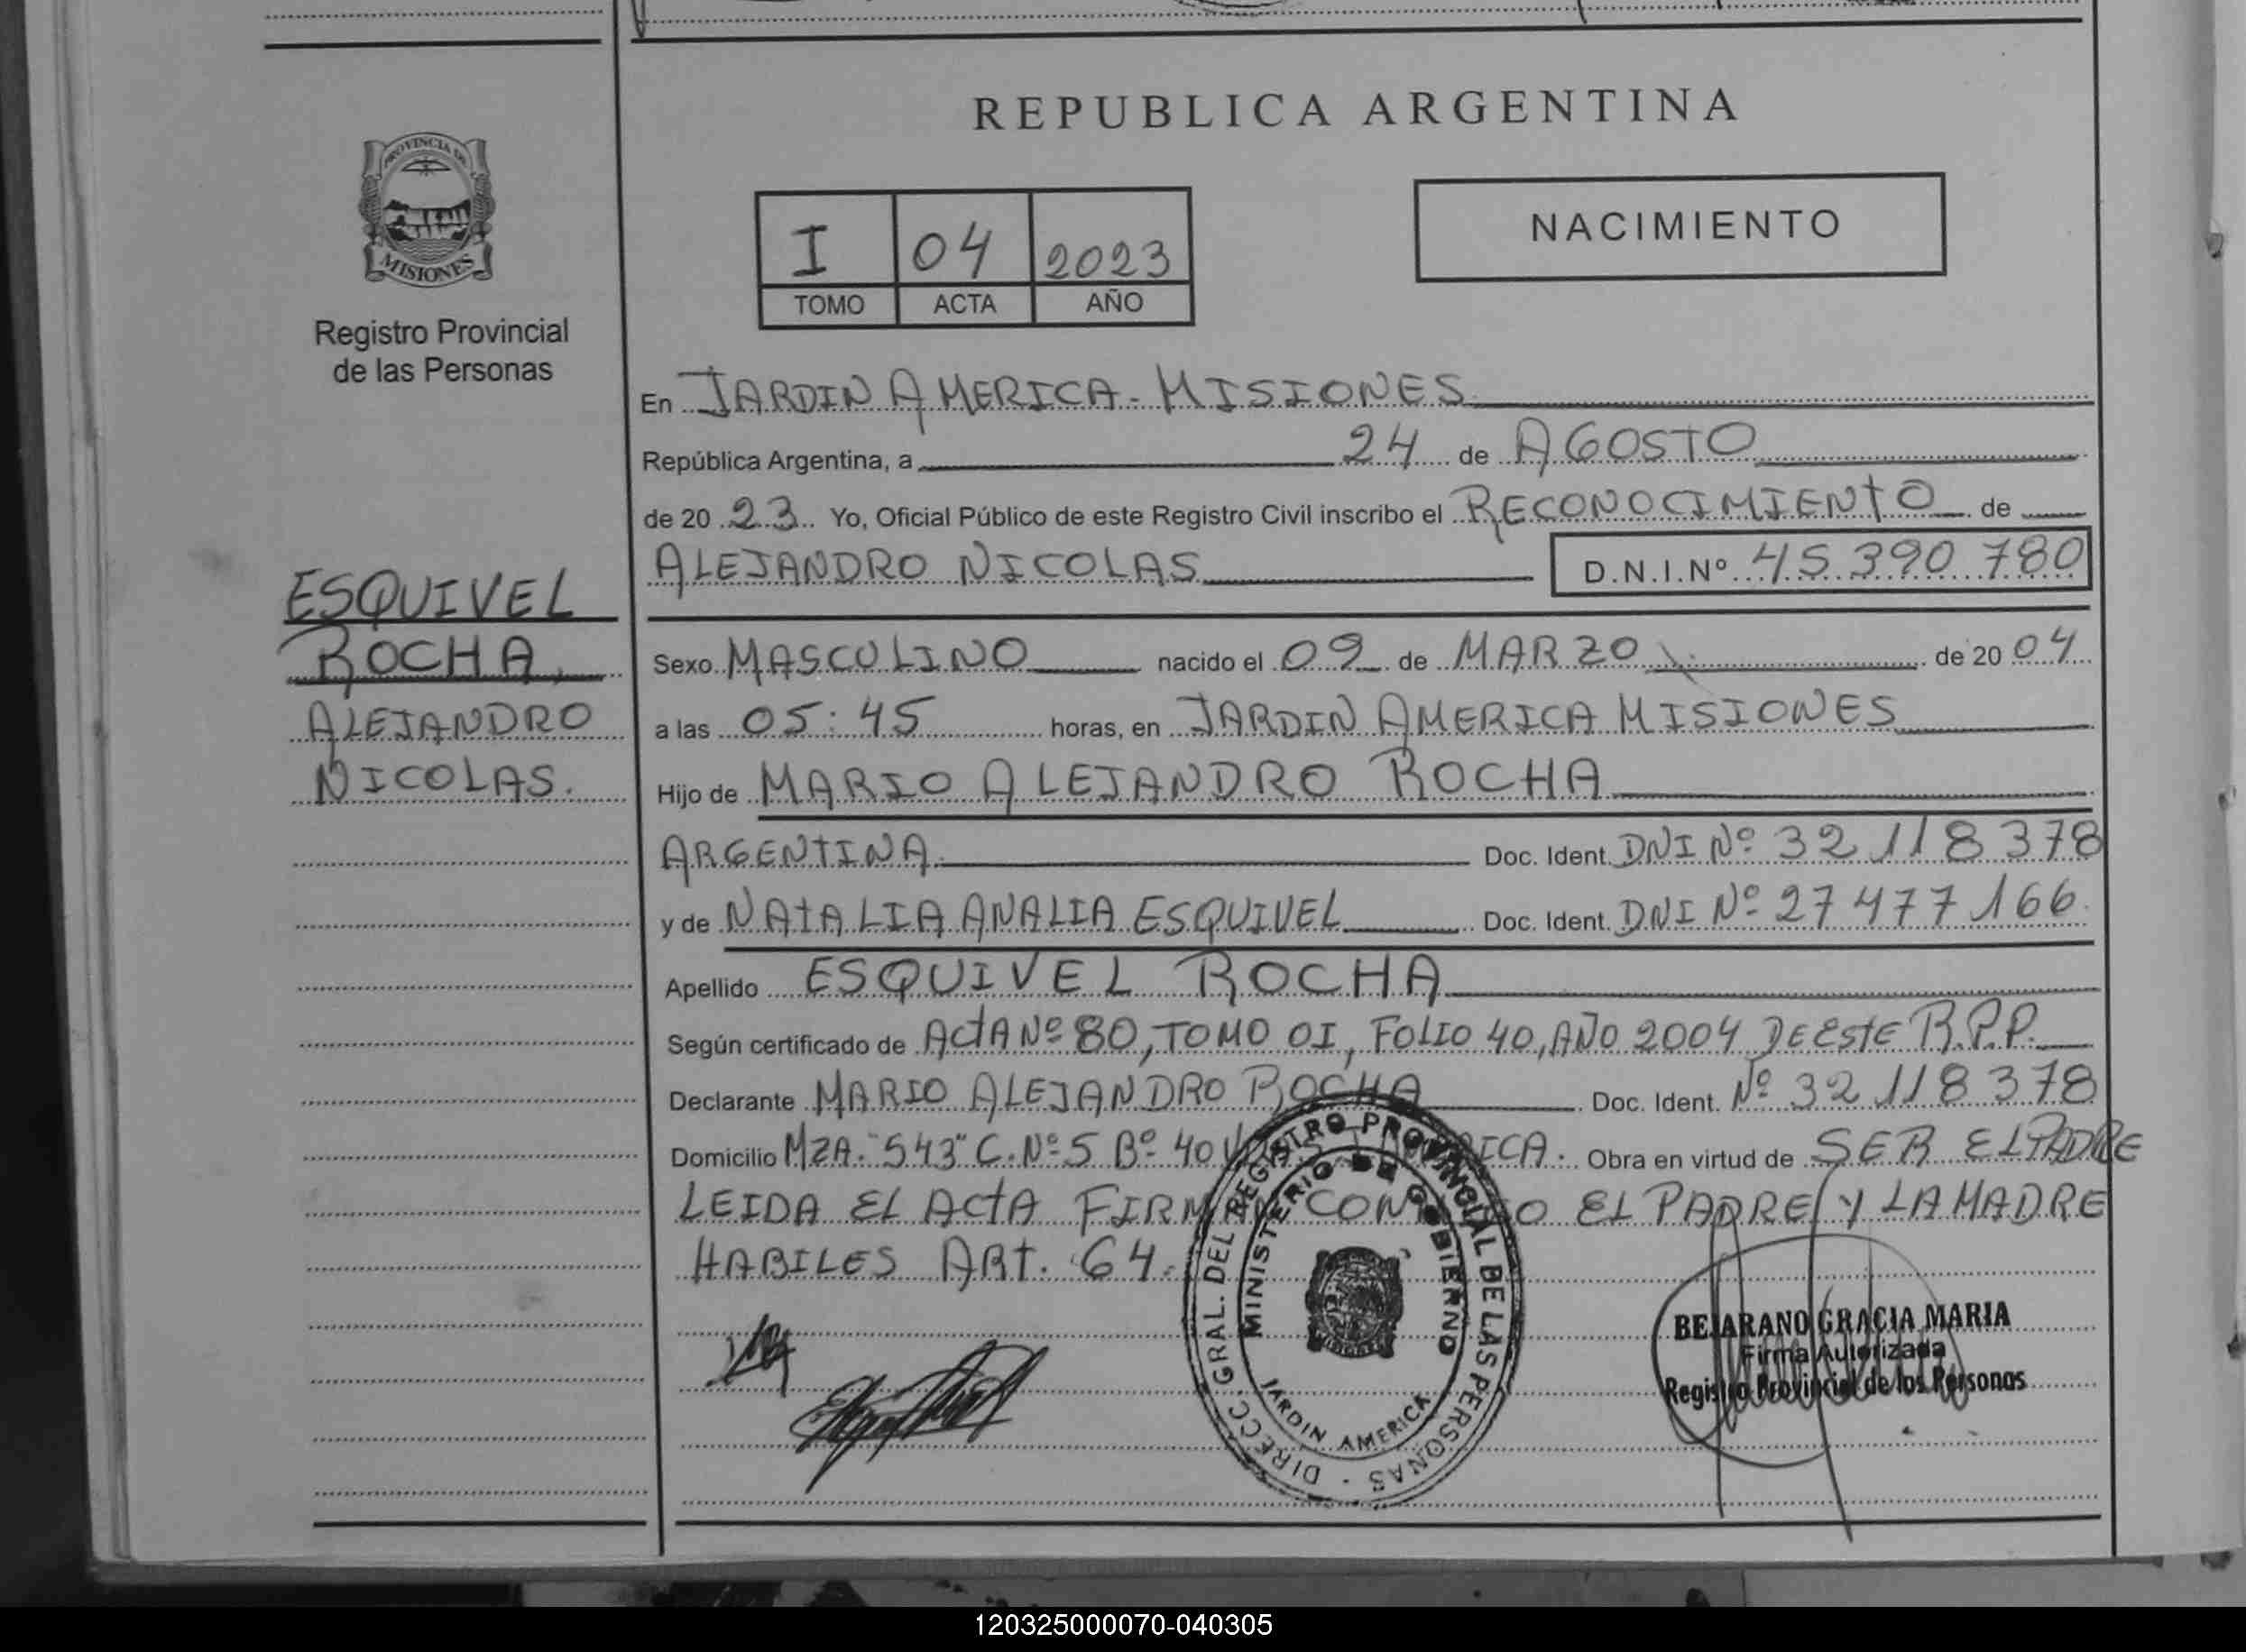 REPUBLICA ARGENTINA
PROVINCIA DE
MISIONES
Registro Provincial
de las Personas
I 04 2023
TOMO ACTA AÑO
NACIMIENTO
ESQUIVEL
ROCHA
ALEJANDRO
NICOLAS.
En JARDIN AMERICA - MISIONES
República Argentina, a 24 de AGOSTO
de 20 23 Yo, Oficial Público de este Registro Civil inscribo el RECONOCIMIENTO de
ALEJANDRO NICOLAS D.N.I.Nº 45 390 780
Sexo MASCULINO nacido el 09 de MARZO de 20 04
a las 05:45 horas, en JARDIN AMERICA MISIONES
Hijo de MARIO ALEJANDRO ROCHA
ARGENTINA. Doc. Ident. DNI Nº 32 118 378
y de NATALIA ANALIA ESQUIVEL Doc. Ident. DNI Nº 27 477 166
Apellido ESQUIVEL ROCHA
Según certificado de ACTA Nº 80, TOMO 01, FOLIO 40, AÑO 2004 DE ESTE R.P.P.
Declarante MARIO ALEJANDRO ROCHA Doc. Ident. Nº 32 118 378
Domicilio MZA. "543" C. Nº 5 Bº 40 Obra en virtud de SER EL PADRE
LEIDA EL ACTA EL PADRE Y LA MADRE
HABILES ART. 64.
DIRECC. GRAL. DEL REGISTRO PROVINCIAL DE LAS PERSONAS
MINISTERIO DE GOBIERNO
JARDIN AMERICA
BEJARANO GRACIA MARIA
Firma Autorizada
Registro Provincial de las Personas
120325000070-040305